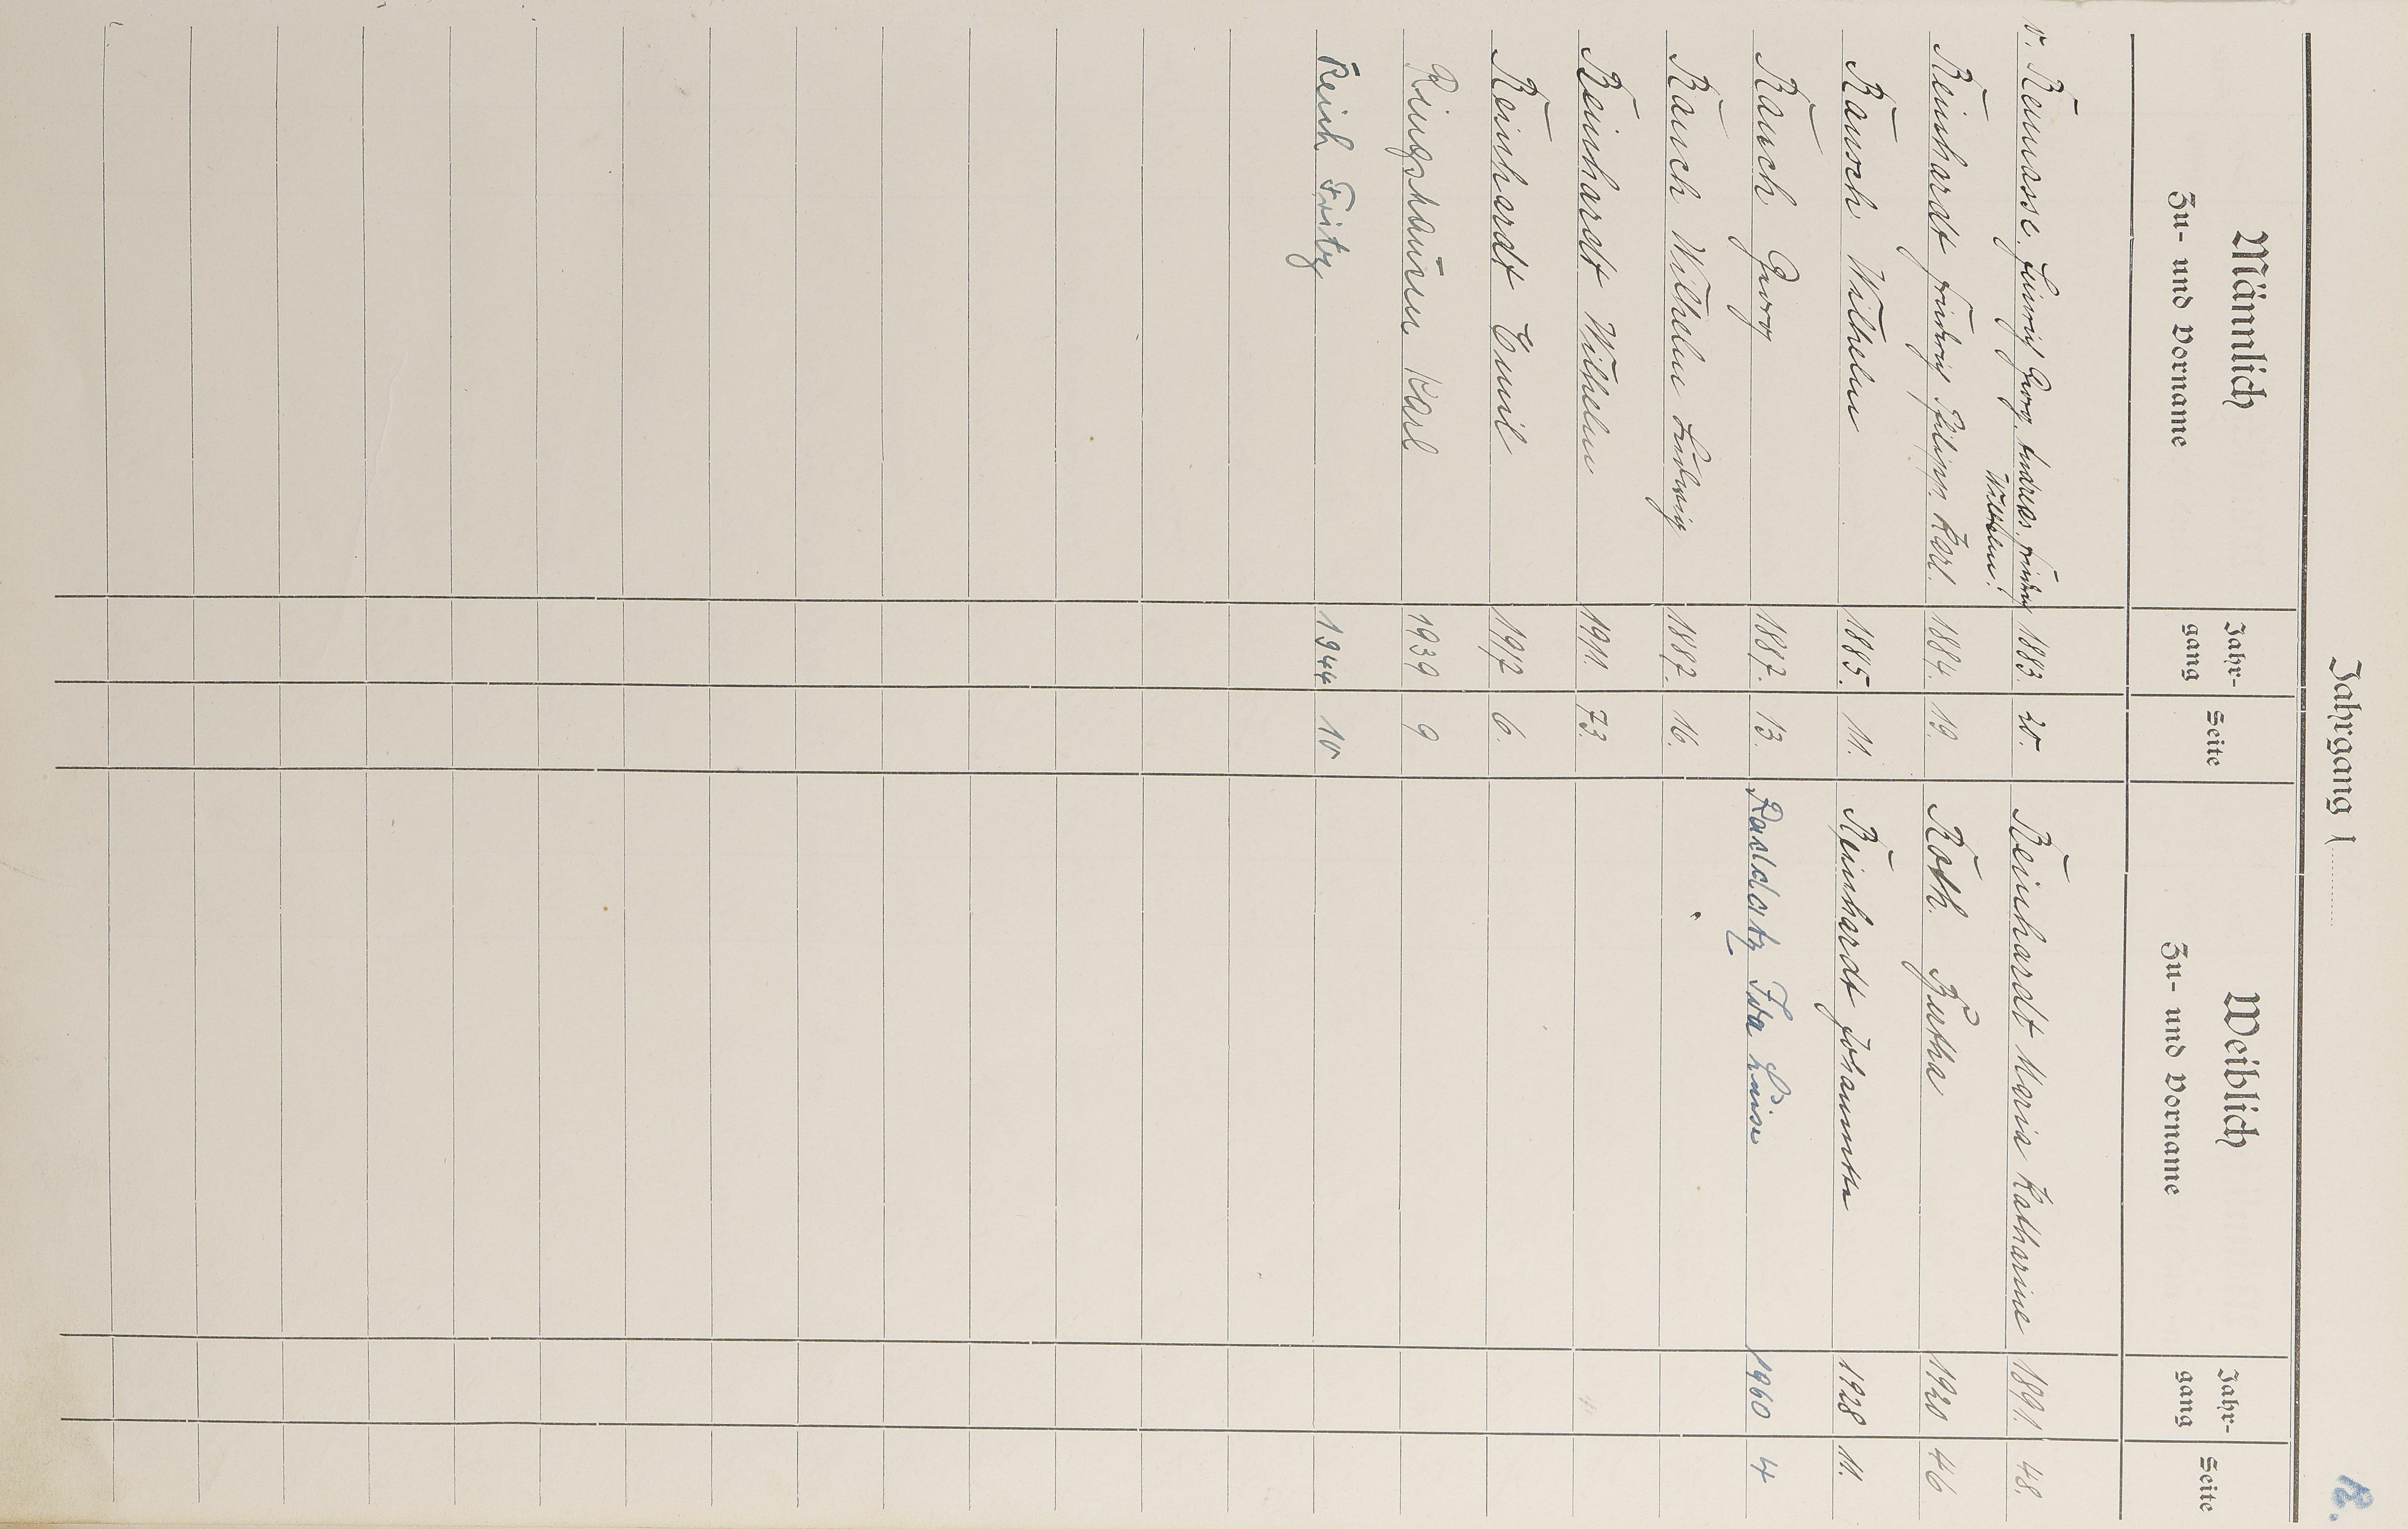 Jahrgang 1
R.
Männlich
Zu- und Vorname
Jahr-
gang
Seite
Weiblich
Zu- und Vorname
Jahr-
gang
Seite
v. Georg, Andreas, Friedrich 1883. 20. Reinhardt Maria Katharine 1891. 48.
Wilhelm!
Reinhardt Friedrich Philipp. Karl. 1884. 19. Roth. Bertha 1920 46
Rausch Wilhelm 1885. 11. Reinhardt Johannette 1928 11.
Rausch Georg 1887. 13. Raddatz Ida Luise 1960 4
Rausch Wilhelm Ludwig 1887. 16.
Reinhardt Wilhelm 1911. 73.
Reinhardt Emil 1917 6.
Ringshausen Karl 1939 9
Reich Fritz 1944 10